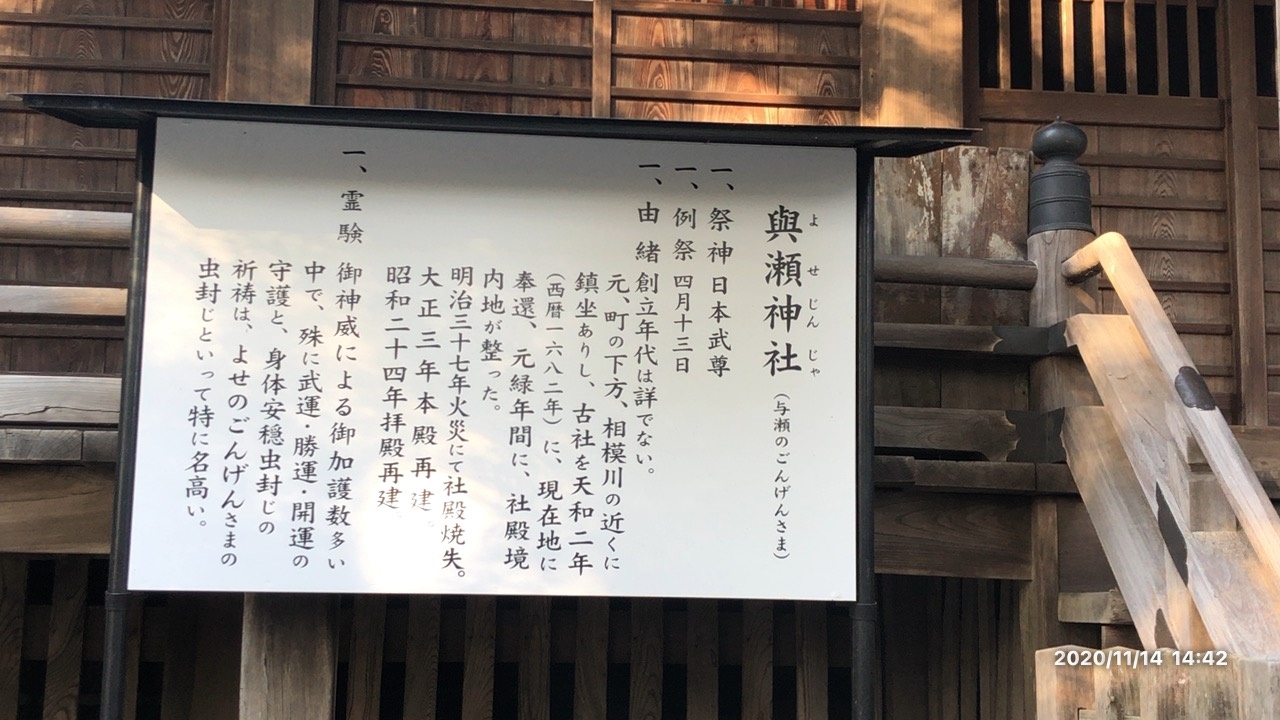 與瀬神社（与瀬のごんげんさま）
よせじんじゃ
一、祭神 日本武尊
一、例祭 四月十三日
一、由緒 創立年代は詳でない。
元、町の下方、相模川の近くに
鎮坐ありし、古社を天和二年
（西暦一六八二年）に、現在地に
奉還、元緑年間に、社殿境
内地が整った。
明治三十七年火災にて社殿焼失。
大正三年本殿再建。
昭和二十四年拝殿再建。
一、霊験 御神威による御加護数多い
中で、殊に武運・勝運・開運の
守護と、身体安穏虫封じの
祈祷は、よせのごんげんさまの
虫封じといって特に名高い。
2020/11/14 14:42